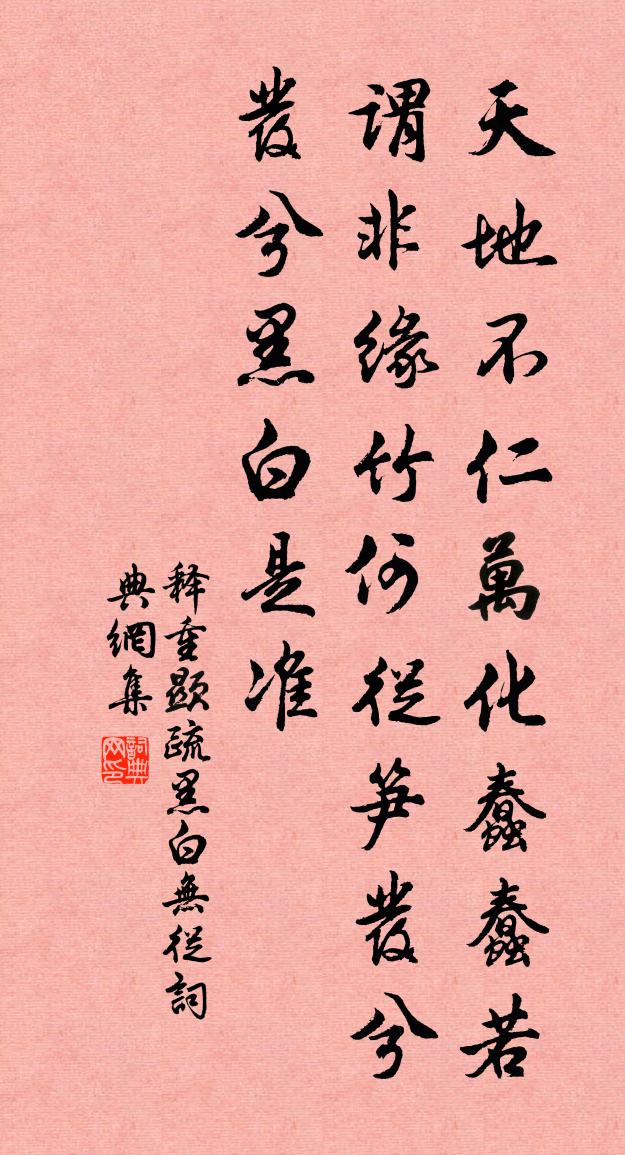 天地不仁萬化蠢蠢若
謂非緣竹何從笋發兮
發兮黑白是准
释重顯疏黑白無從詞
典網集
詞典
网印